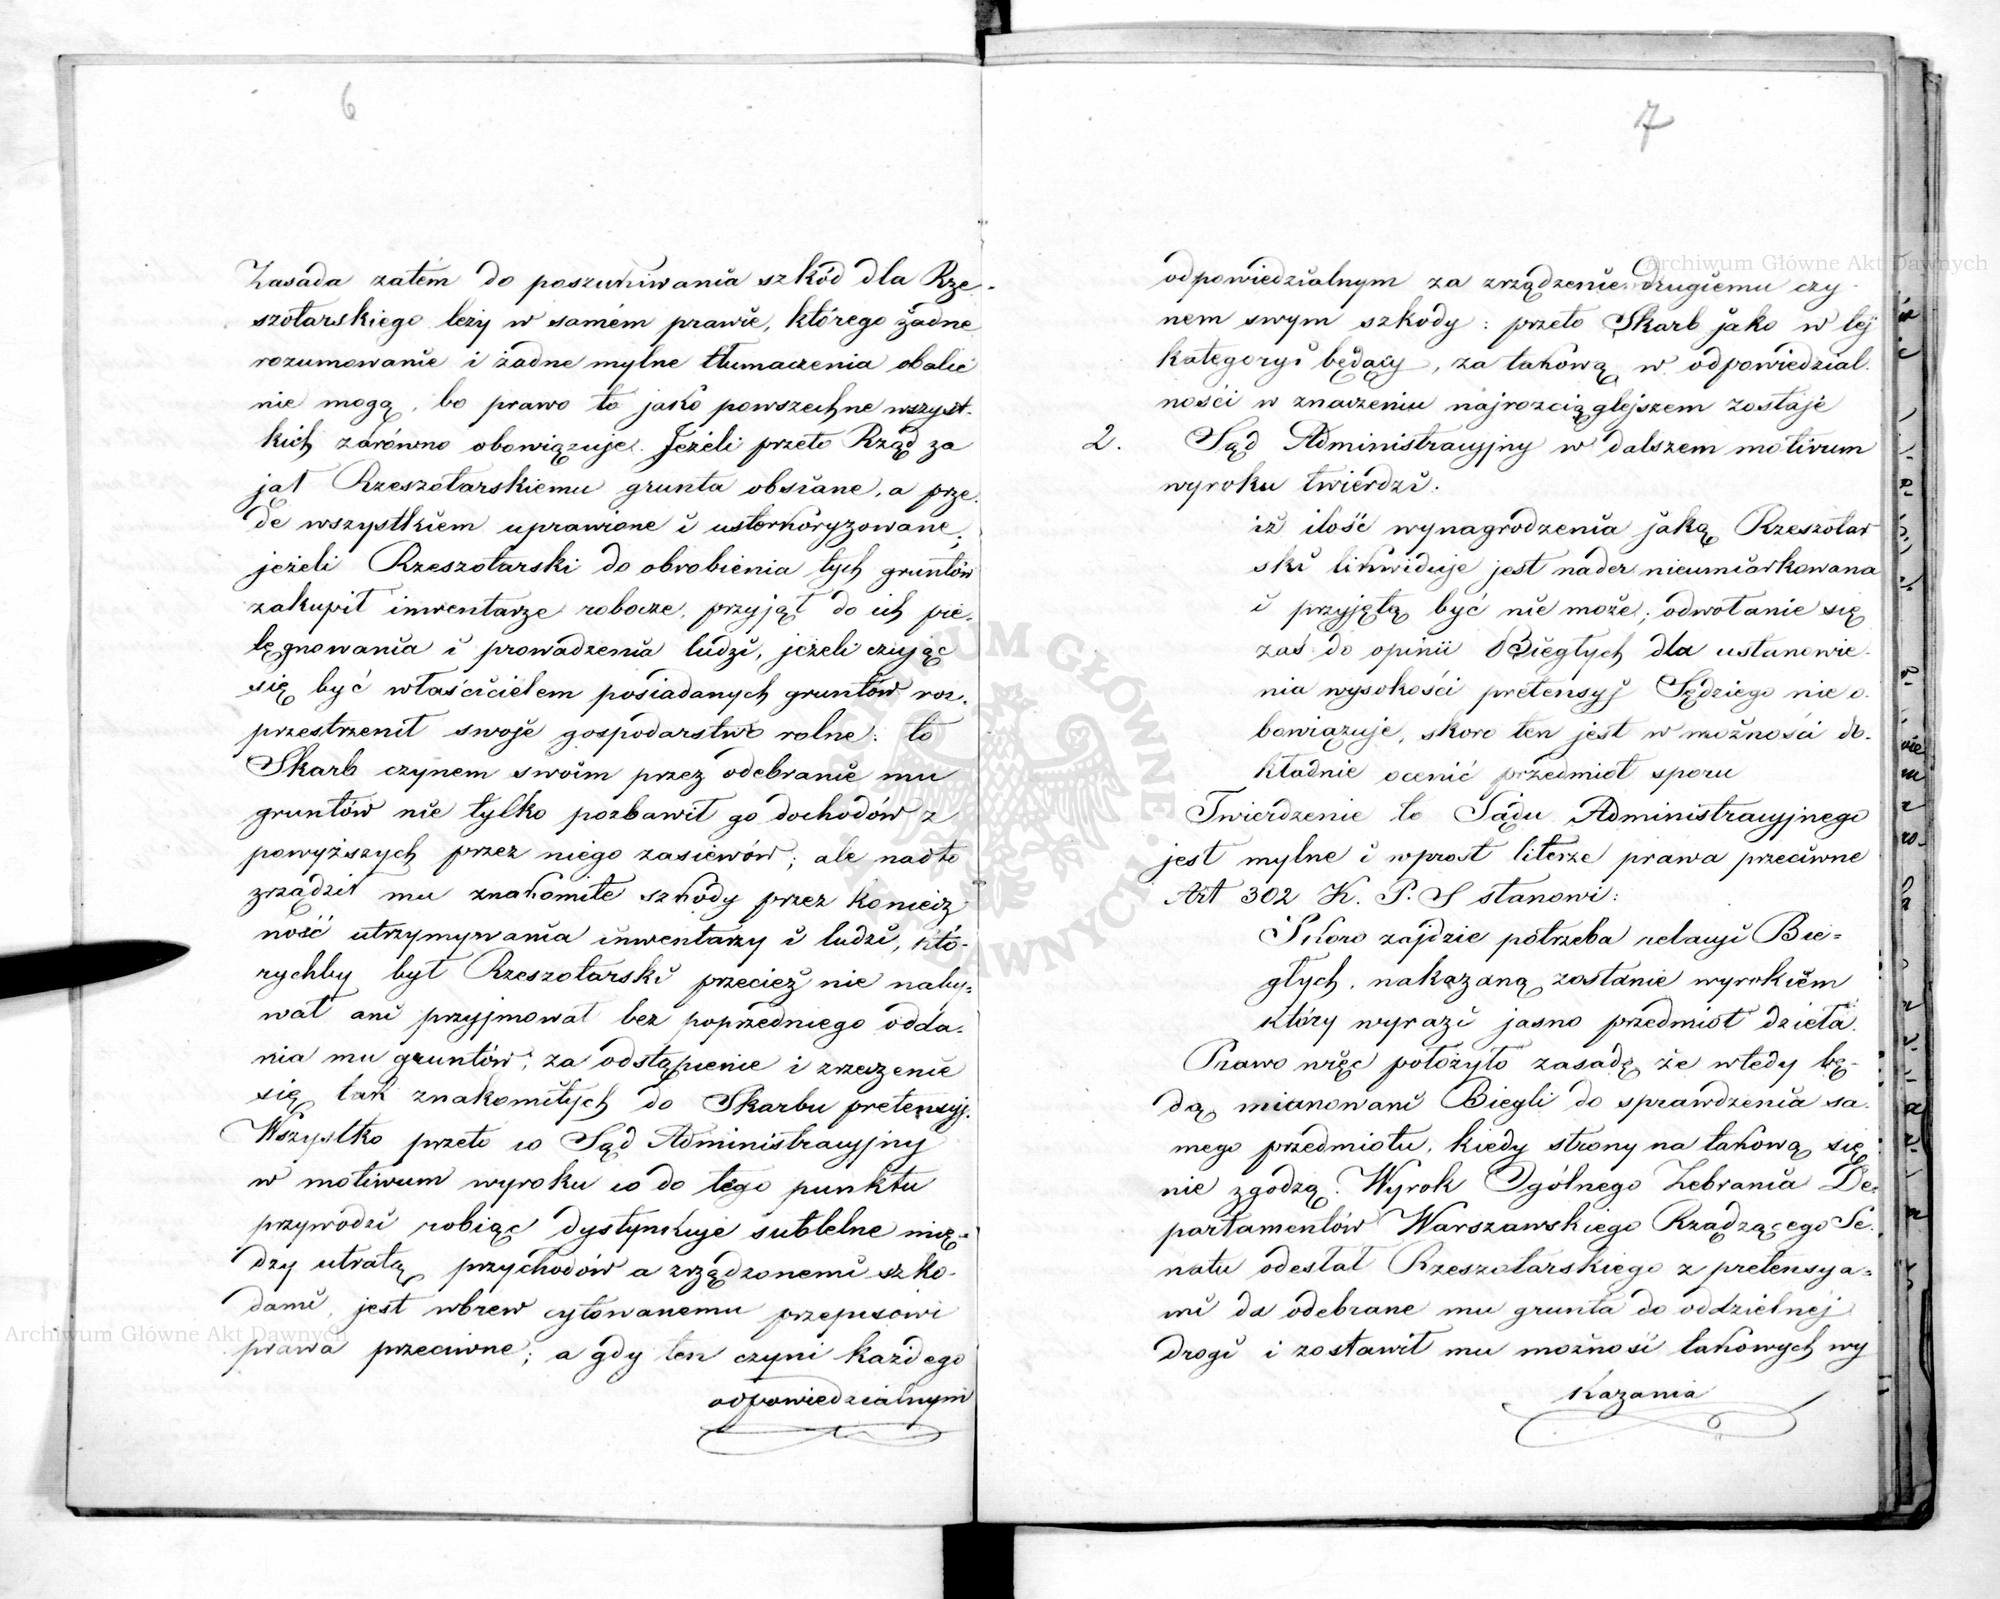 6
Zasada zatém do poszukiwania szkód dla Rze-
szotarskiego leży w samém prawie, którego żadne
rozumowanie i żadne mylne tłumaczenia obalić
nie mogą, bo prawo to jako powszechne wszyst-
kich zarówno obowiązuje. Jeżeli przeto Rząd za
jął Rzeszotarskiemu grunta obsiane, a prze.
de wszystkiem uprawione i usterkoryzowane;
jeżeli Rzeszotarski do obrobienia tych gruntów
zakupił inwentarze robocze, przyjął do ich pie-
lęgnowania i prowadzenia ludzi, jeżeli czując
się być właścicielem posiadanych gruntów roz-
przestrzenił swoje gospodarstwo rolne: to
Skarb czynem swoim przez odebranie mu
gruntów nie tylko pozbawił go dochodów z
powyższych przez niego zasiewów; ale nadto
zrządził mu znakomite szkody przez koniecz
ność utrzymywania inwentarzy i ludzi, któ-
rychby był Rzeszotarski przecież nie naby-
wał ani przyjmował bez poprzedniego odda-
nia mu gruntów; za odstąpienie i zrzeczenie
się tak znakomitych do Skarbu pretensyj.
Wszystko przeto co Sąd Administracyjny
w motiwum wyroku co do tego punktu
przywodzi robiąc dystynkcije subtelne mię-
dzy utratą przychodów a zrządzonemi szko-
dami, jest wbrew cytowanemu przepisowi
prawa przeciwne; a gdy ten czyni każdego
odpowiedzialnym
7
odpowiedzialnym za zrządzenie drugiemu czy-
nem swym szkody: przeto Skarb jako w tej
kategoryi będący, za takową w odpowiedzial.
ności w znaczeniu najrozciąglejszem zostaje
2. Sąd Administracyjny w dalszem motivum
wyroku twierdzi.
iż ilość wynagrodzenia jaką Rzeszotar
ski likwiduje jest nader nieumiarkowana
i przyjętą być nie może; odwołanie się
zaś do opinii Biegłych dla ustanowie-
nia wysokości pretensyj Sędziego nie o.
bowiązuje, skoro ten jest w możności do-
kładnie ocenić przedmiot sporu
Twierdzenie to Sądu Administracyjnego
jest mylne i wprost literze prawa przeciwne
Art 302 K. P. S stanowi:
Skoro zajdzie potrzeba relacyi Bie-
głych, nakazaną zostanie wyrokiem
który wyrazi jasno przedmiot dzieła.
Prawo więc położyło zasadę że wtedy bę-
dą mianowani Biegli do sprawdzenia sa.
mego przedmiotu, kiedy strony na takową się
nie zgodzą. Wyrok Ogólnego Zebrania De-
partamentów Warszawskiego Rządzącego Se.
natu odesłał Rzeszotarskiego z pretensya-
mi za odebrane mu grunta do oddzielnej
drogi i zostawił mu możność takowych wy
kazania
Archiwum Główne Akt Dawnych
Archiwum Główne Akt Dawnych